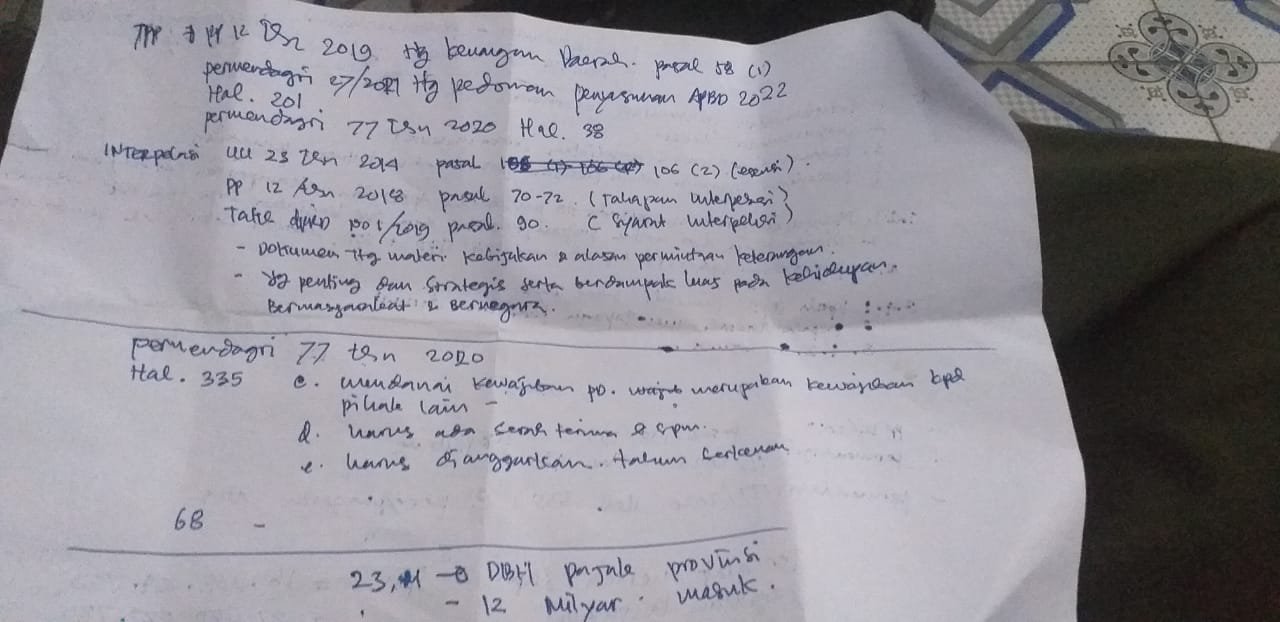 TPP → PP 12 Thn 2019 ttg keuangan Daerah. pasal 58 (1)
permendagri 27/2021 ttg pedoman penyusunan APBD 2022
Hal. 201
permendagri 77 Thn 2020 Hal. 38
INTERpelasi UU 23 Thn 2014 pasal 106 (2) (esensi).
PP 12 Thn 2018 pasal 70-72. (Tahapan interpelasi)
Tatib DPRD 1/2019 pasal. 90. (Syarat interpelasi)
- Dokumen ttg materi kebijakan & alasan permintaan keterangan.
- Yg penting dan strategis serta berdampak luas pada kehidupan.
Bermasyarakat & Bernegara.
permendagri 77 thn 2020
Hal. 335 c. mendanai kewajiban PD. merupakan kewajiban kpd
pihak lain -
d. harus ada serah terima & spm.
e. harus dianggarkan. tahun berkenaan
68 -
23, M → DBH pajak provinsi
- 12 Milyar. masuk.